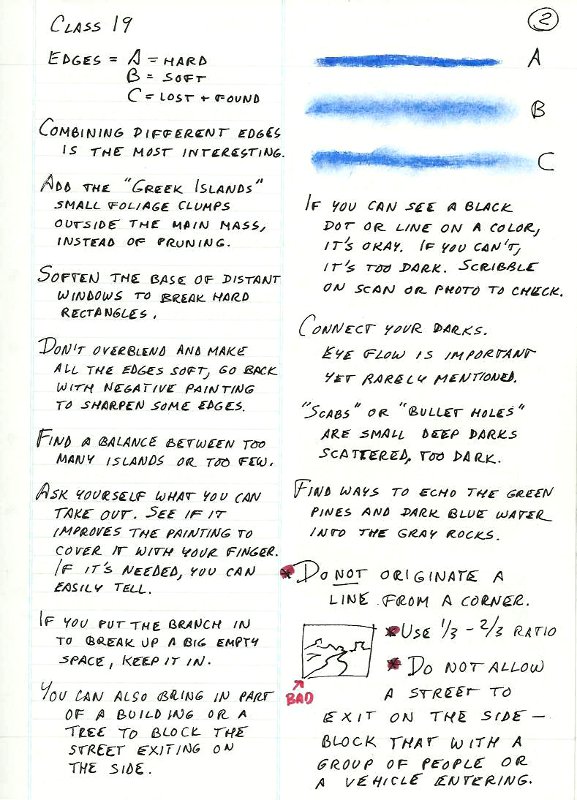 Class 19
2
Edges = A = Hard
B = Soft
C = Lost + Found
Combining different edges
is the most interesting.
Add the "Greek Islands"
small foliage clumps
outside the main mass,
instead of pruning.
Soften the base of distant
windows to break hard
rectangles.
Don't overblend and make
all the edges soft, go back
with negative painting
to sharpen some edges.
Find a balance between too
many islands or too few.
Ask yourself what you can
take out. See if it
improves the painting to
cover it with your finger.
If it's needed, you can
easily tell.
If you put the branch in
to break up a big empty
space, keep it in.
You can also bring in part
of a building or a
tree to block the
street exiting on
the side.
A
B
C
If you can see a black
dot or line on a color,
it's okay. If you can't,
it's too dark. Scribble
on scan or photo to check.
Connect your darks.
Eye flow is important
yet rarely mentioned.
"Scabs" or "Bullet Holes"
are small deep darks
scattered, too dark.
Find ways to echo the green
pines and dark blue water
into the gray rocks.
* Do not originate a
line from a corner.
* Use 1/3 - 2/3 ratio
BAD
* Do not allow
a street to
exit on the side —
block that with a
group of people or
a vehicle entering.